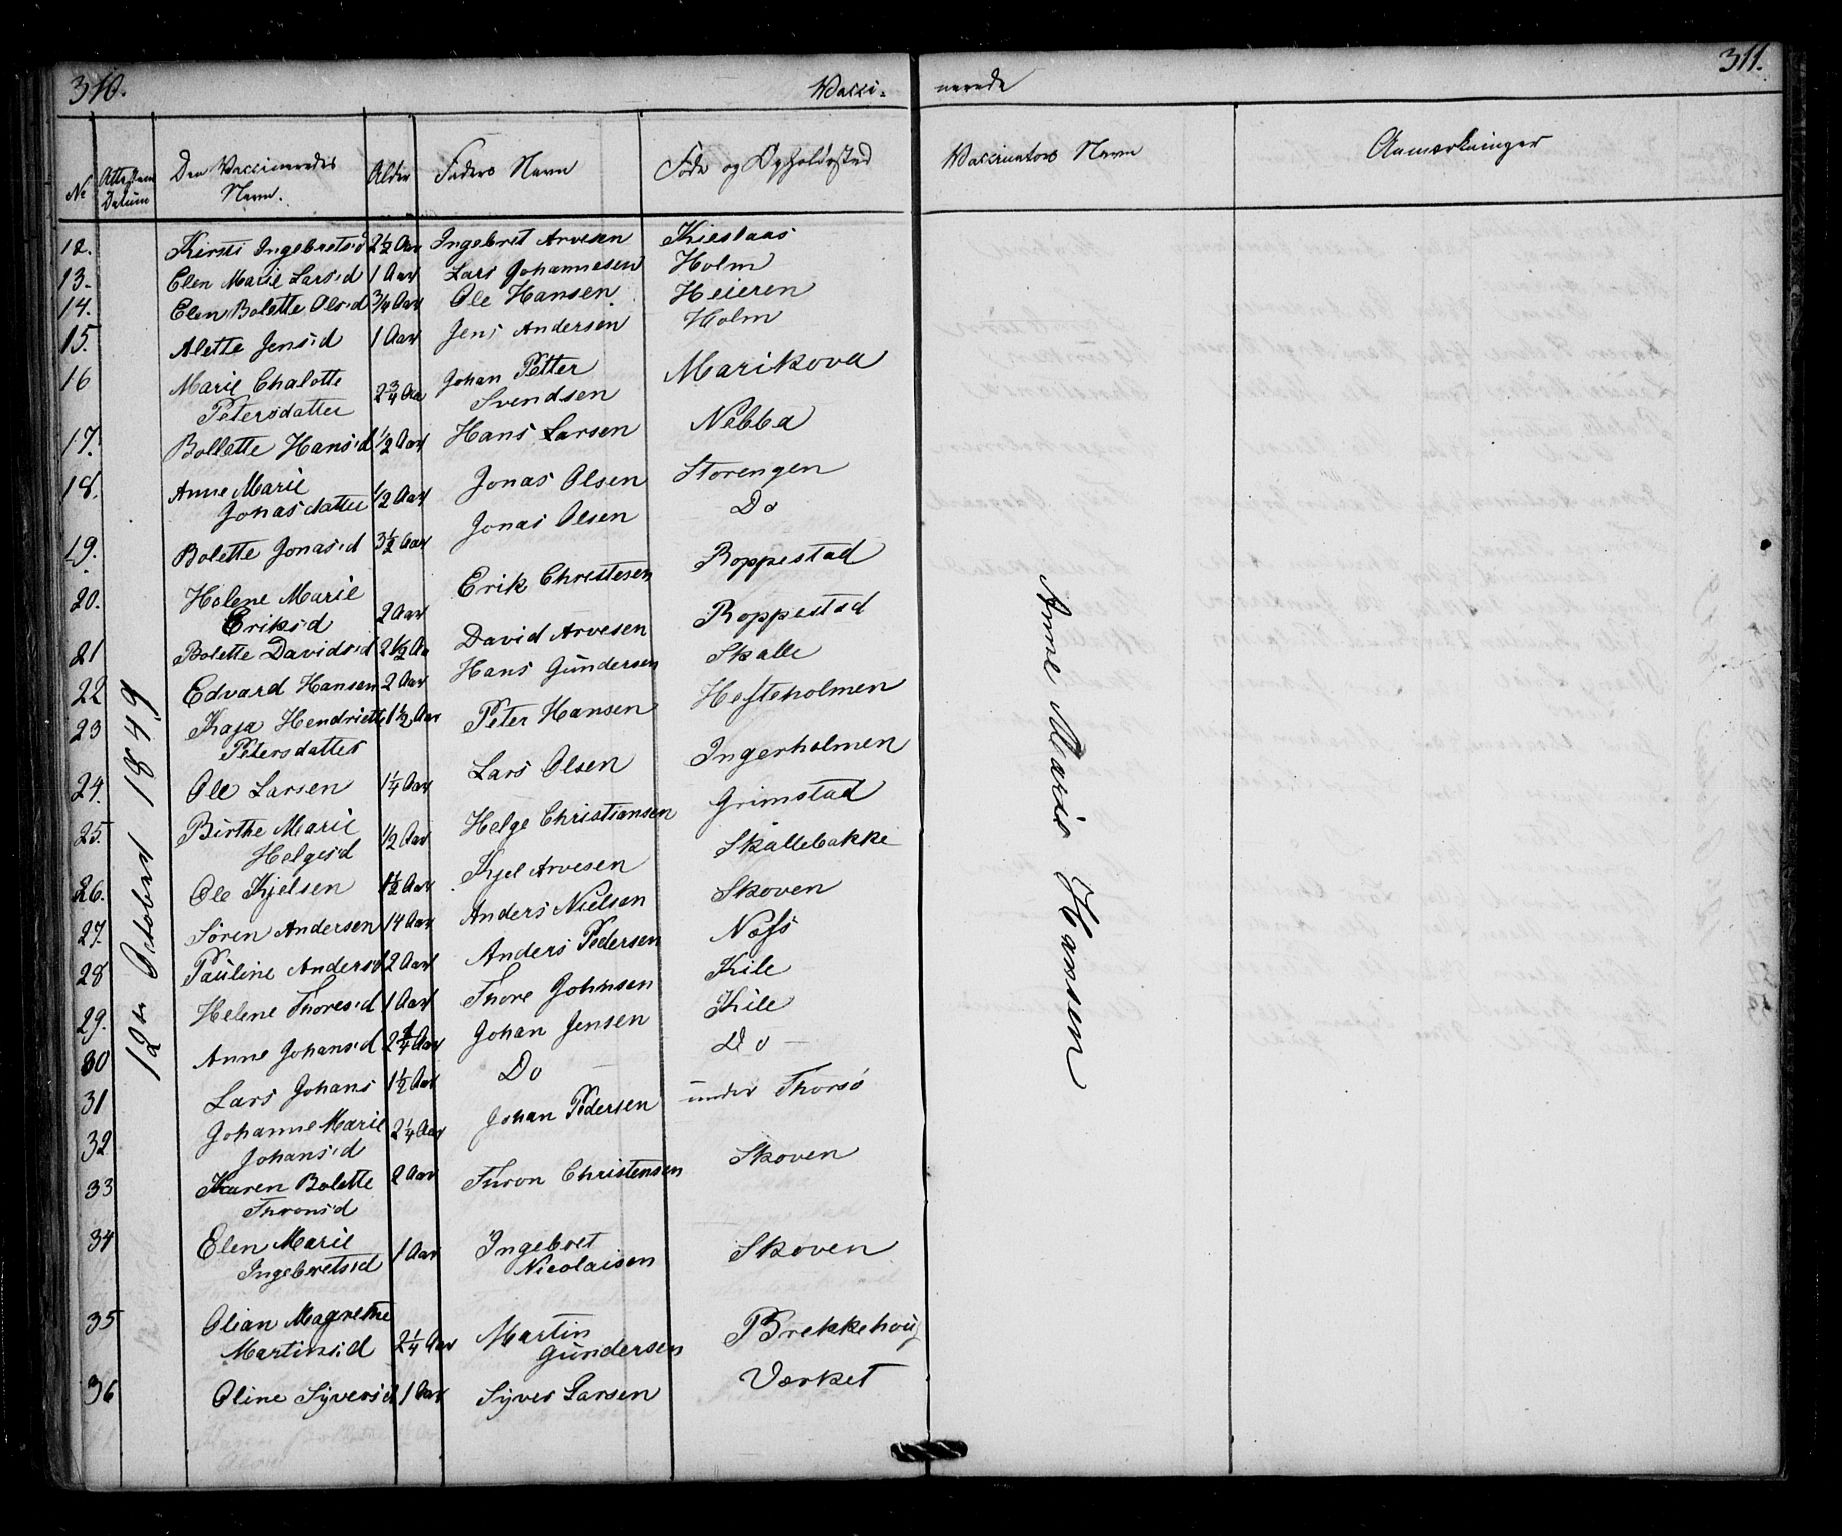 310. Vacci- nerede 311.
No Attestens Datum Den Vaccineredes Navn. Alder Faders Navn Føde og Opholdssted Vaccinators Navn Anmærkninger
12. Kirsti Ingebretsd 2½ Aar Ingebret Arvesen Kieslaas
13. Elen Marie Larsd 1 Aar Lars Johannesen Holm
14. Elen Bolette Olsd ¾ Aar Ole Hansen Heieren
15. Alette Jensd 1 Aar Jens Andersen Holm
16 Marie Chalotte 2¾ Aar Johan Petter Marikova
Petersdatter Svendsen
17. Bollette Hansd ½ Aar Hans Larsen Nebba
18. Anne Marie ½ Aar Jonas Olsen Storengen
Jonasdatter
19. Bolette Jonasd 3½ Aar Jonas Olsen Do
20. Helene Marie 2 Aar Erik Christesen Roppestad
Eriksd
21 Bolette Davidsd 2½ Aa David Arvesen Roppestad
22 Edvard Hansen 2 Aar Hans Gundersen Skalle
23 Kaja Hendriette 1½ Aar Peter Hansen Hesteholmen
Petersdatter
24. Ole Larsen 1¼ Aar Lars Olsen Ingerholmen
25. Birthe Marie ½ Aar Helge Christiansen Grimstad
Helgesd
26. Ole Kjelsen 1½ Aar Kjel Arvesen Skallebakke
27. Søren Andersen 14 Aar Anders Nielsen Skoven
28 Pauline Andersd 2 Aar Anders Pedersen Næss
29. Helene Thoresd 1 Aar Thore Johnsen Kile
30 Anne Johansd 2¼ Aar Johan Jensen Kile
31 Lars Johans 1½ Aar Do Do
32 Johanne Marie 2¼ Aar Johan Pedersen under Thorsø
Johansd
33 Karen Bolette 2 Aar Thron Christensen Skoven
Thronsd
34 Elen Marie 1 Aar Ingebret Skoven
Ingebretsd Nicolaisen
35 Olian Magrethe 2¼ Aar Martin Brekkehoug
Martinsd Gundersen
36 Oline Syversd 1 Aar Syver Larsen Værket
12te October 1849
Anne Marie Hansen